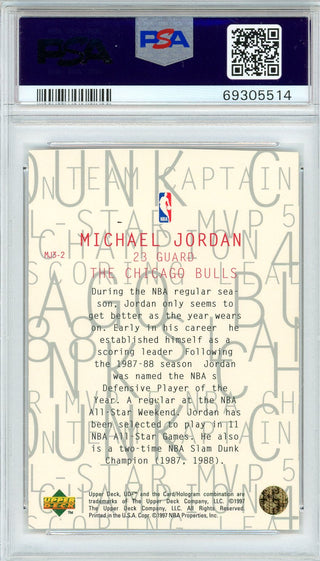 PSA
PSA
69305514
DUNK C
ON TEAM CAPTAIN
L-STAR MVP 5
MICHAEL JORDAN
MJ3-2
23 GUARD
THE CHICAGO BULLS
During the NBA regular sea-
son, Jordan only seems to
get better as the year wears
on. Early in his career he
established himself as a
scoring leader Following
the 1987-88 season Jordan
was named the NBA s
Defensive Player of the
Year. A regular at the NBA
All-Star Weekend, Jordan has
been selected to play in 11
NBA All-Star Games. He also
is a two-time NBA Slam Dunk
Champion (1987, 1988).
UPPER DECK
Upper Deck, UDI and the Card/Hologram combination are
trademarks of The Upper Deck Company, LLC. ©1997
The Upper Deck Company, LLC. All Rights Reserved.
Printed in the U.S.A. Copr. ©1997 NBA Properties, Inc.